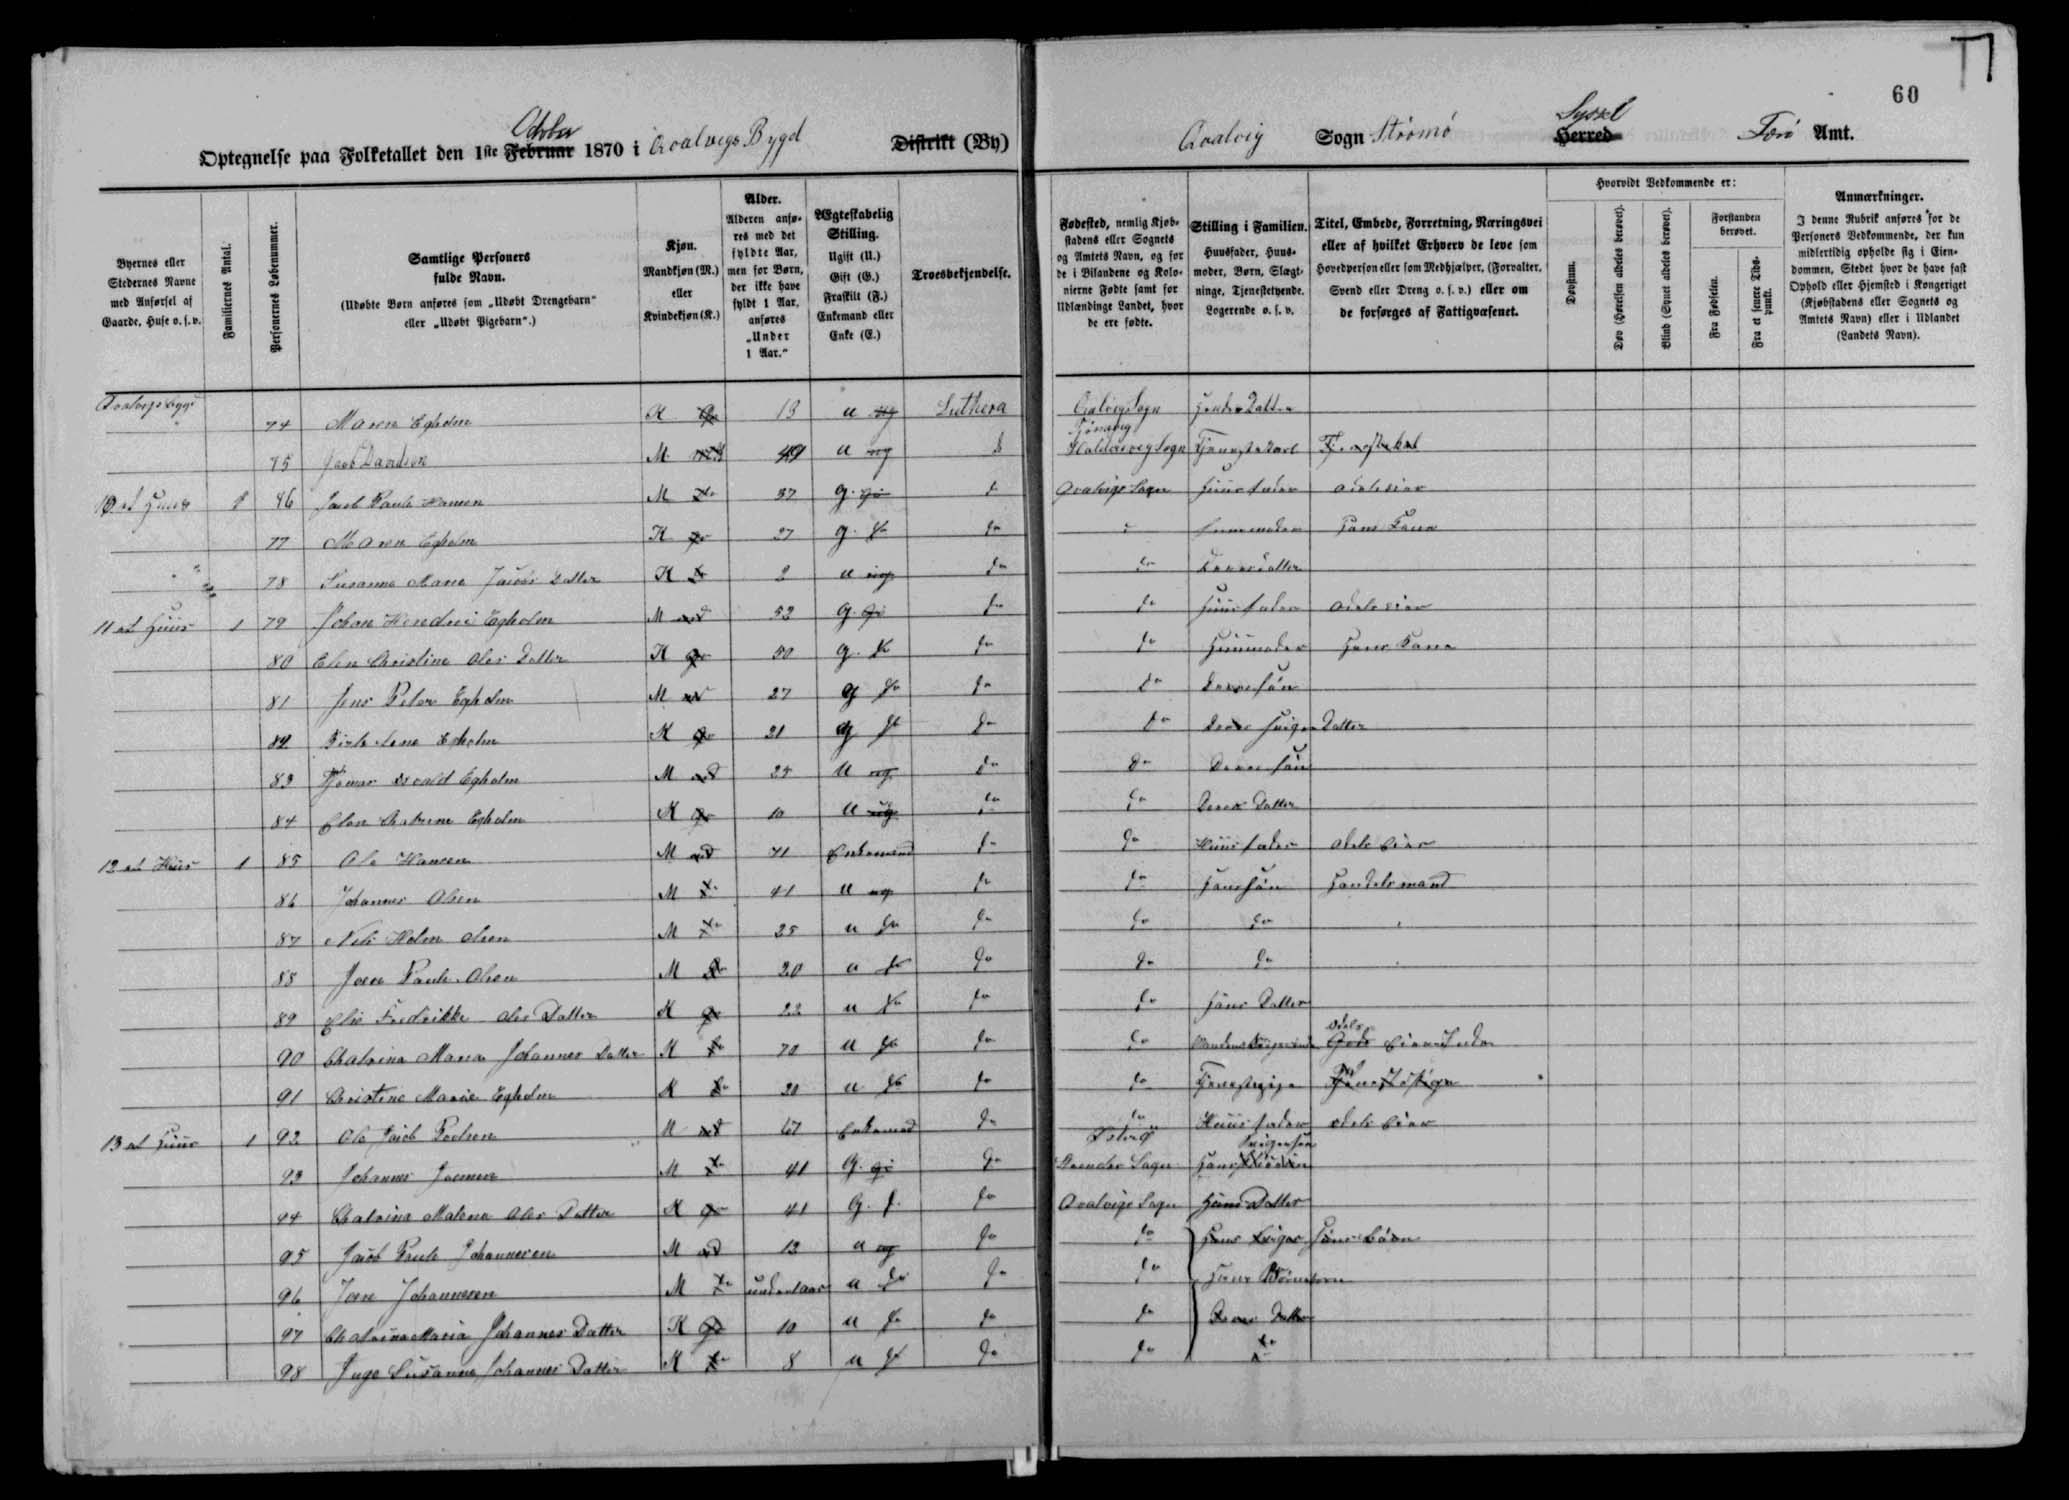 60
October
Optegnelse paa Folketallet den 1ste Februar 1870 i Qvalvigs Bygd Distrikt (By)
Syssel
Qvalvig Sogn Strømø Herred Færø Amt.
Byernes eller Stedernes Navne med Anførsel af Gaarde, Huse o. s. v.
Familiernes Antal.
Personernes Løbenummer.
Samtlige Personers fulde Navn.
(Udøbte Børn anføres som „Udøbt Drengebarn“ eller „Udøbt Pigebarn“.)
Kjøn.
Mandkjøn (M.) eller Kvindekjøn (K.)
Alder.
Alderen anføres med det fyldte Aar, men for Børn, der ikke have fyldt 1 Aar, anføres „Under 1 Aar.“
Ægteskabelig Stilling.
Ugift (U.)
Gift (G.)
Fraskilt (F.)
Enkemand eller Enke (E.)
Troesbekjendelse.
Fødested, nemlig Kjøbstadens eller Sognets og Amtets Navn, og for de i Bilandene og Kolonierne Fødte samt for Udlændinge Landet, hvor de ere fødte.
Stilling i Familien.
Huusfader, Huusmoder, Børn, Slægtninge, Tjenestetyende. Logerende o. s. v.
Titel, Embede, Forretning, Næringsvei eller af hvilket Erhverv de leve som Hovedperson eller som Medhjælper, (Forvalter, Svend eller Dreng o. s. v.) eller om de forsørges af Fattigvæsenet.
Hvorvidt Vedkommende er:
Døvstum.
Døv (Hørelsen aldeles berøvet).
Blind (Synet aldeles berøvet).
Forstanden berøvet.
Fra Fødselen.
Fra et senere Tidspunkt.
Anmærkninger.
I denne Rubrik anføres for de Personers Vedkommende, der kun midlertidig opholde sig i Eiendommen, Stedet hvor de have fast Ophold eller Hjemsted i Kongeriget (Kjøbstadens eller Sognets og Amtets Navn) eller i Udlandet (Landets Navn).
Qvalvigs bygd 74 Maren Egholm K 13 u Luthera Qvalvig Sogn Datter
75 Jacob Davidsen M 49 u Tjørnevig Haldersvig Sogn Tjenestekarl
10 et Huus 1 76 Jacob Paule Hansen M 37 g. do Qvalvigs Sogn Huusfader odelseier
77 Maren Egholm K 27 g. do do Huusmoder Hans Kone
78 Susanna Maria Jacobs Datter K 2 u do do Deres Datter
11 et Huus 1 79 Johan Hendric Egholm M 52 g. do do Huusfader odelseier
80 Elen Christine Oles Datter K 50 g. do do do Huusmoder Hans Kone
81 Jens Peter Egholm M 27 g do do do Deres søn
82 Egholm K 21 g do do do Deres Svigerdatter
83 Egholm M 25 u do do Deres søn
84 Elen Catrine Egholm K 10 u do do Deres Datter
12 et Huus 1 85 Ole Hansen M 71 Enkemand do do Huusfader odels Eier
86 Johannes Olsen M 41 u do do Hans søn Handelsmand
87 Nels Holm Olsen M 25 u do do do do
88 Joen Paule Olsen M 20 u do do do do
89 Fredrikke Oles Datter K 22 u do do do Hans Datter
90 Chatrina Maria Johannes Datter K 70 u do do do odels
91 Christine Marie Egholm K 20 u do do do Tjenestepige
13 et Huus 1 92 Ole Jacob Poulsen M 67 Enkemand do do Huusfader odels Eier
93 Johannes Joensen M 41 G. do Østerø Sogn Svigersøn
94 Chatrina Malena Oles Datter K 41 G. do Qvalvigs Sogn Hans Datter
95 Jacob Paule Johannesen M 12 u do do
96 Joen Johannesen M under 1 aar u do do do Hans Børnebørn
97 Chatrina Maria Johannes Datter K 10 u do do do Deres Datter
98 Inge Susanne Johannes Datter K 8 u do do do do